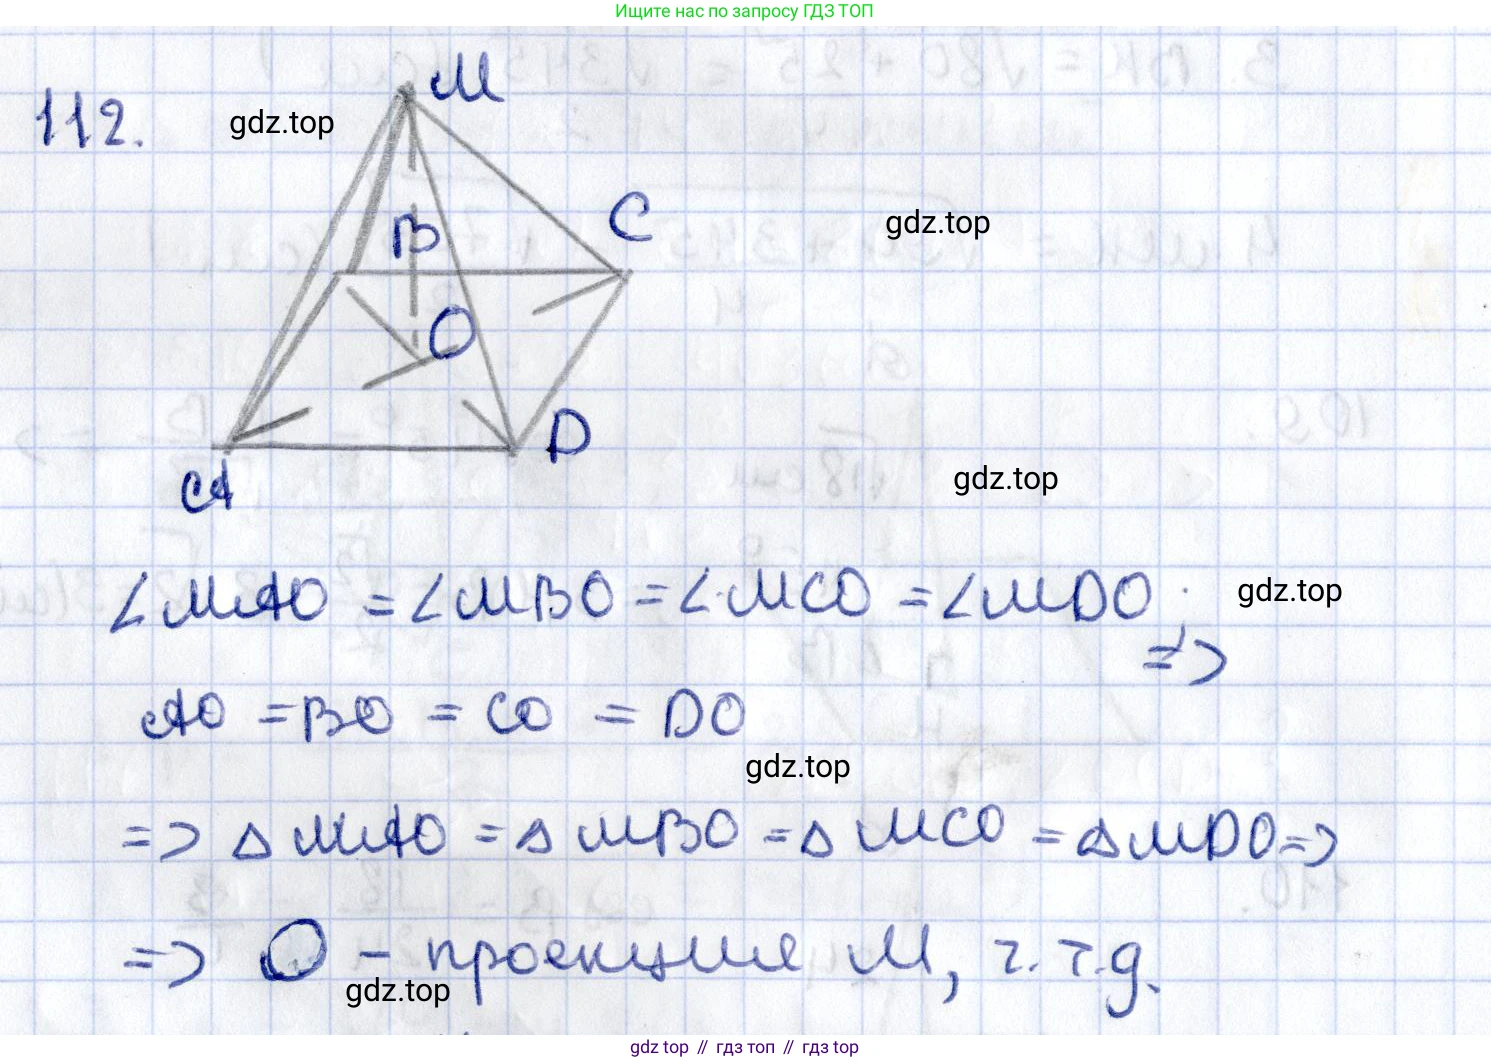 Ищите нас по запросу ГДЗ ТОП
112.
gdz.top
M
B
C
gdz.top
O
D
A
gdz.top
∠MAO = ∠MBO = ∠MCO = ∠MDO ; gdz.top
=>
AO = BO = CO = DO
gdz.top
=> △MAO = △MBO = △MCO = △MDO =>
=> O - проекция M, ч.т.д.
gdz.top
gdz top // гдз топ // гдз top